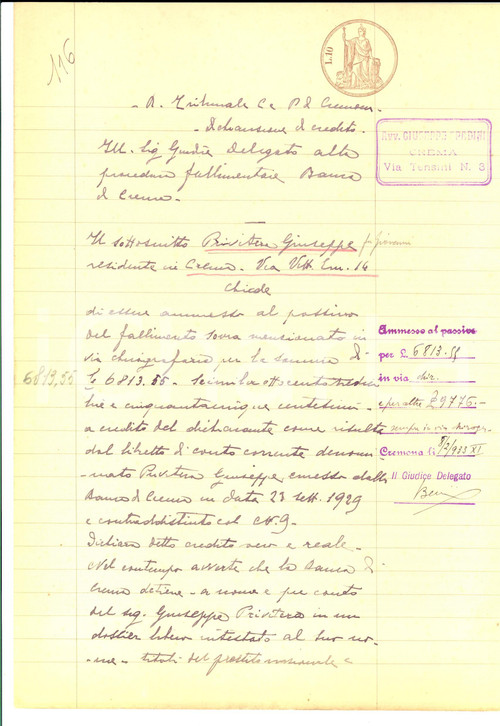 116
L.10
R. Tribunale C. e P. di Cremona
Dichiarazione di credito.
Avv. GIUSEPPE
CREMA
Via Tensini N. 3
Ill. Sig. Giudice Delegato alla
procedura fallimentare Banca
di Crema.
Il sottoscritto Privitera Giuseppe fu Giovanni
residente in Crema. Via Vitt. Em. 14
Chiede
di essere ammesso al passivo
del fallimento sovra menzionato in
via chirografaria per la somma di
6813,55
L. 6813.55 - seimila ottocentotredici
lire e cinquantacinque centesimi
a credito del dichiarante come risulta
dal libretto di conto corrente denomi
nato Privitera Giuseppe emesso dalla
Banca di Crema in data 23 sett. 1929
e contraddistinto col N. 9
Dichiara detto credito vero e reale.
Nel contempo avverte che la Banca di
Crema detiene a nome e per conto
del sig. Giuseppe Privitera in un
dossier libero intestato al suo no-
me - titoli del prestito nazionale e
Ammesso al passivo
per L. 6813.55
in via
e per altre L 9776.-
Cremona li 933 XI
Il Giudice Delegato